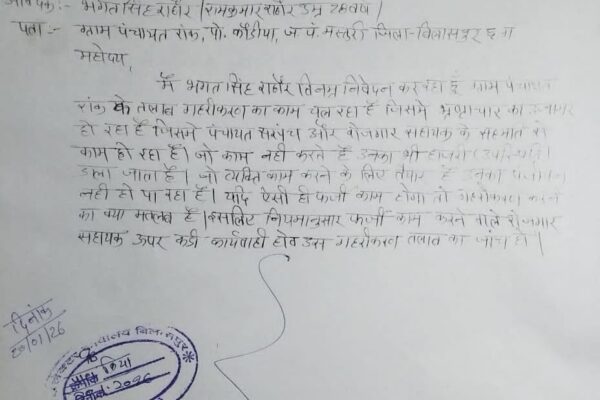 आवेदक:- भगत सिंह राठौर / रामकुमार राठौर उम्र 28 वर्ष |
पता:- ग्राम पंचायत रांक, पो. कौडीया, ज.पं. मस्तुरी जिला-बिलासपुर छ ग
महोदय,
मैं भगत सिंह राठौर विनम्र निवेदन कर रहा हूँ ग्राम पंचायत
रांक के तलाब गहरीकरण का काम चल रहा है जिसमे भ्रष्टाचार का उजागर
हो रहा है जिसमे पंचायत सरपंच और रोजगार सहायक के सहमति से
काम हो रहा है। जो काम नही करते है उनका भी हाजरी (उपस्थिति)
डाला जाता है। जो व्यक्ति काम करने के लिए तैयार है उनका पंजीयन
नही हो पा रहा है। यदि ऐसी ही फर्जी काम होगा तो गहरीकरण करने
का क्या मतलब है। इसलिए नियमानुसार फर्जी काम करने वाले रोजगार
सहायक ऊपर कड़ी कार्यवाही होवे उस गहरीकरण तलाब का जांच हो।
दिनांक
20/01/26
बिलासपुर
2026